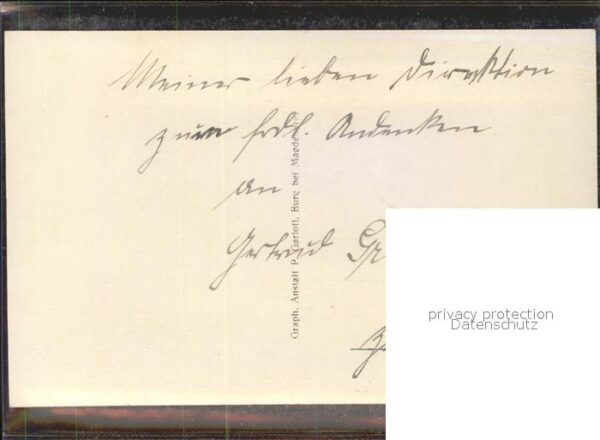 Meiner lieben Direktion
zum frdl. Andenken
an
Gertrud
Graph. Anstalt P. Garloff, Burg bei Magdeburg
privacy protection
Datenschutz